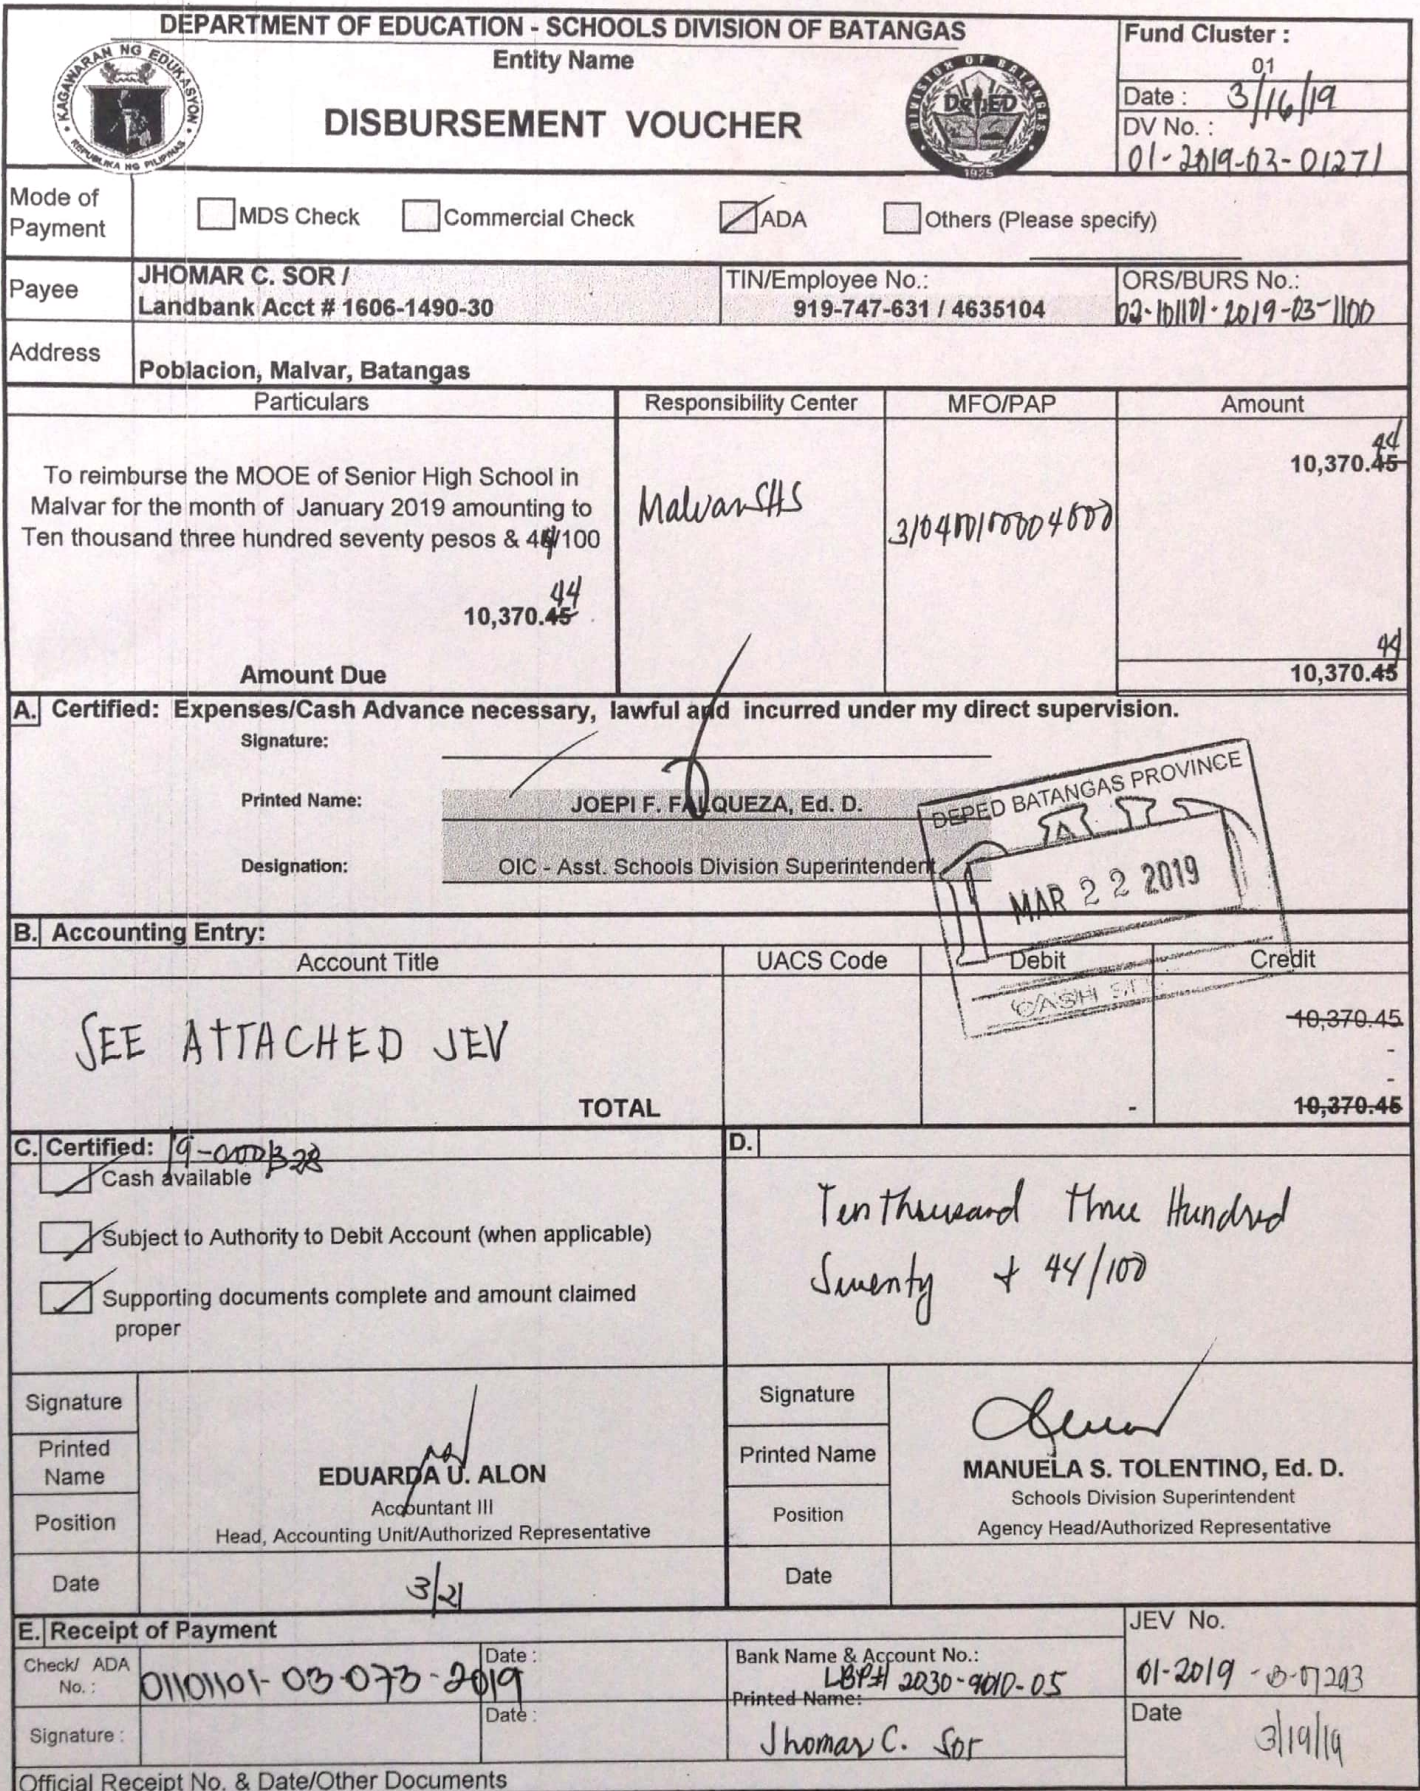 DEPARTMENT OF EDUCATION - SCHOOLS DIVISION OF BATANGAS
Entity Name
KAGAWARAN NG EDUKASYON
REPUBLIKA NG PILIPINAS
DISBURSEMENT VOUCHER
DIVISION OF BATANGAS
DepED
1925
Fund Cluster :
01
Date : 3/16/19
DV No. :
01-2019-03-01271
Mode of Payment
MDS Check
Commercial Check
ADA
Others (Please specify)
Payee
JHOMAR C. SOR /
Landbank Acct # 1606-1490-30
TIN/Employee No.:
919-747-631 / 4635104
ORS/BURS No.:
02-101101-2019-03-1100
Address
Poblacion, Malvar, Batangas
Particulars
Responsibility Center
MFO/PAP
Amount
To reimburse the MOOE of Senior High School in
Malvar for the month of January 2019 amounting to
Ten thousand three hundred seventy pesos & 44/100
44
10,370.45
Amount Due
Malvar SHS
310400100004000
44
10,370.45
44
10,370.45
A. Certified: Expenses/Cash Advance necessary, lawful and incurred under my direct supervision.
Signature:
Printed Name:
JOEPI F. FALQUEZA, Ed. D.
Designation:
OIC - Asst. Schools Division Superintendent
DEPED BATANGAS PROVINCE
MAR 22 2019
CASH
B. Accounting Entry:
Account Title
UACS Code
Debit
Credit
SEE ATTACHED JEV
10,370.45
-
-
TOTAL
-
10,370.45
C. Certified:
Cash available
Subject to Authority to Debit Account (when applicable)
Supporting documents complete and amount claimed
proper
D.
Ten thousand three Hundred
Seventy + 44/100
Signature
Printed Name
EDUARDA U. ALON
Position
Accountant III
Head, Accounting Unit/Authorized Representative
Date
3/21
Signature
Printed Name
MANUELA S. TOLENTINO, Ed. D.
Position
Schools Division Superintendent
Agency Head/Authorized Representative
Date
E. Receipt of Payment
Check/ ADA No. :
01101101-03-073-2019
Date :
Bank Name & Account No.:
LBP# 2030-9010-05
Printed Name:
Jhomar C. Sor
Signature :
Date :
JEV No.
01-2019
Date
3/19/19
Official Receipt No. & Date/Other Documents